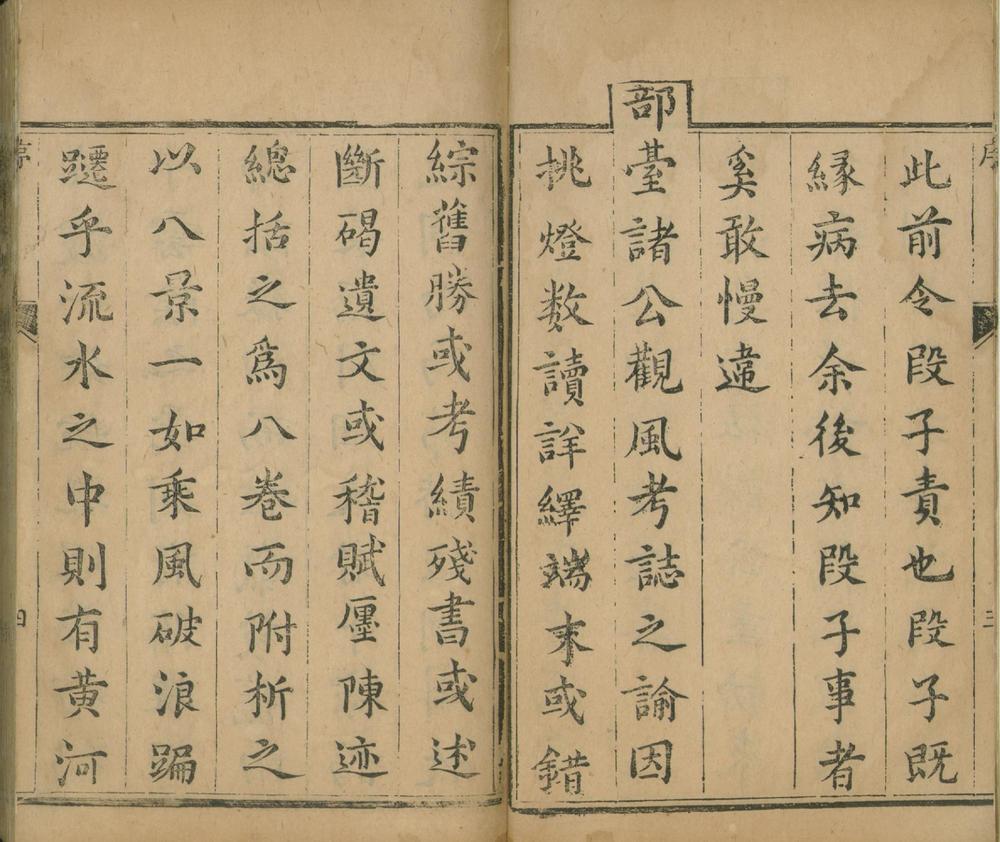 此前令段子責也段子既
緣病去余後知段子事者
奚敢慢違
部臺諸公觀風考誌之諭因
挑燈数讀詳繹端末或錯
綜舊勝或考績殘書或述
斷碣遺文或稽賦厘陳迹
總括之爲八卷而附析之
以八景一如乘風破浪蹁
躚乎流水之中則有黄河
四